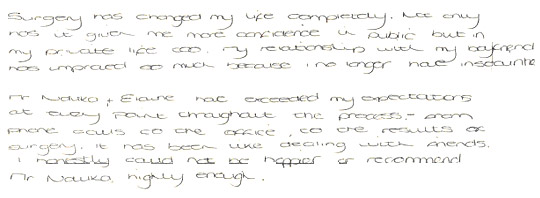 Surgery has changed my life completely. Not only
has it given me more confidence in public but in
my private life too. My relationship with my boyfriend
has improved so much because i no longer have insecurities

Mr Nduka + Elaine had exceeded my expectations
at every point throughout the process - from
phone calls to the office, to the results of
surgery. It has been like dealing with friends.
i honestly could not be happier or recommend
Mr Nduka highly enough.